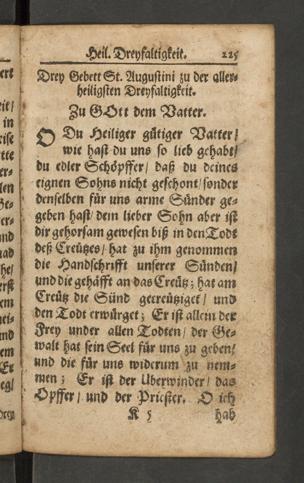 Heil. Dreyfaltigkeit. 225
Drey Gebett St. Augustini zu der aller-
heiligsten Dreyfaltigkeit.
Zu GOtt dem Vatter.
O Du Heiliger gütiger Vatter/
wie hast du uns so lieb gehabt/
du edler Schöpffer/ daß du deines
eignen Sohns nicht geschont/ sonder
denselben für uns arme Sünder ge-
geben hast/ dein lieber Sohn aber ist
dir gehorsam gewesen biß in den Todt
deß Creützes/ hat zu ihm genommen
die Handschrifft unserer Sünden/
und die gehäfft an das Creütz; hat am
Creütz die Sünd gecreütziget/ und
den Todt erwürget; Er ist allein der
Frey under allen Todten/ der Ge-
walt hat sein Seel für uns zu geben/
und die für uns widerum zu nem-
men; Er ist der Uberwinder/ das
Opffer/ und der Priester. O ich
K 5 hab